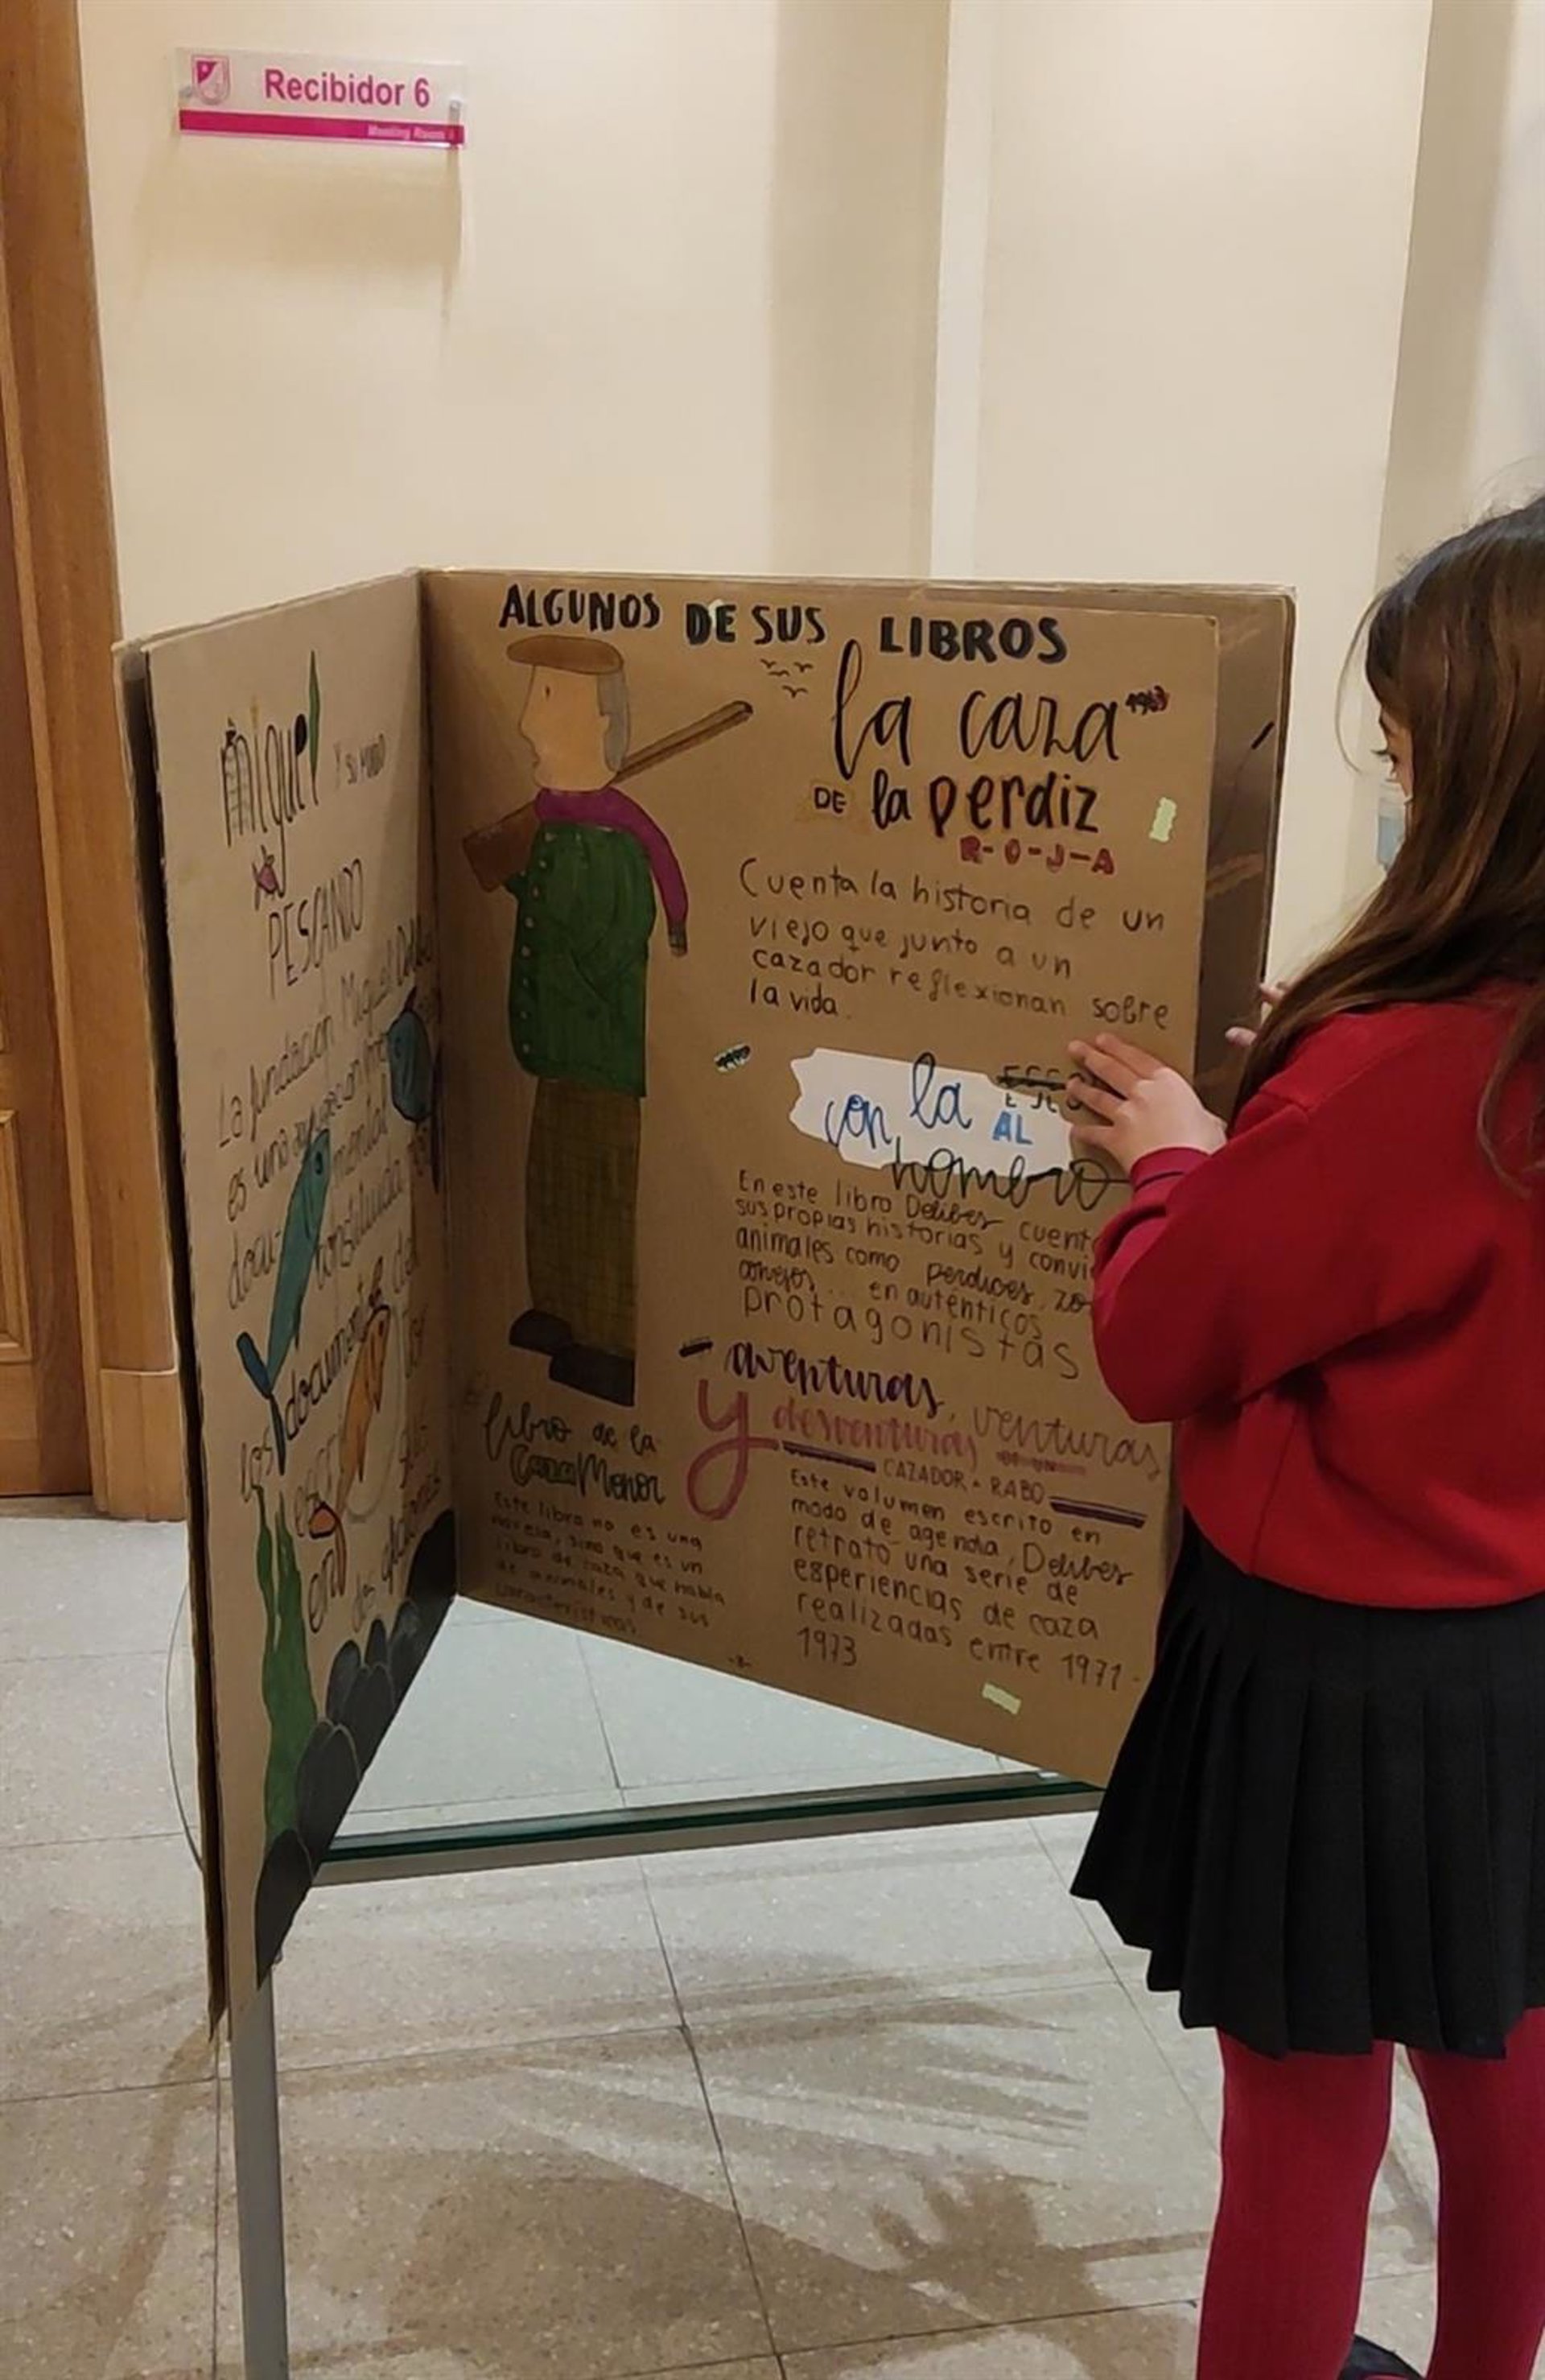 Recibidor 6
Meeting Room
miguel
Y SU MUNDO
PESCANDO
La fundacion Miguel
es una
docu- mental
constituida
documental
los
en
ALGUNOS DE SUS LIBROS
la caza 1963
DE la perdiz
R-O-J-A
Cuenta la historia de un
viejo que junto a un
cazador reflexionan sobre
la vida.
con la
AL
hombro
En este libro Delibes cuent
sus propias historias y convi
animales como perdices, zo
conejos... en autenticos
protagonistas
- aventuras, venturas
y desventuras DE UN
CAZADOR - RABO
Este volumen escrito en
modo de agenda, Delibes
retrato una serie de
esperiencias de caza
realizadas entre 1971-
1973
libro de la
Caza Menor
Este libro no es una
novela, sino que es un
libro de caza que habla
de animales y de sus
caracteristicas.